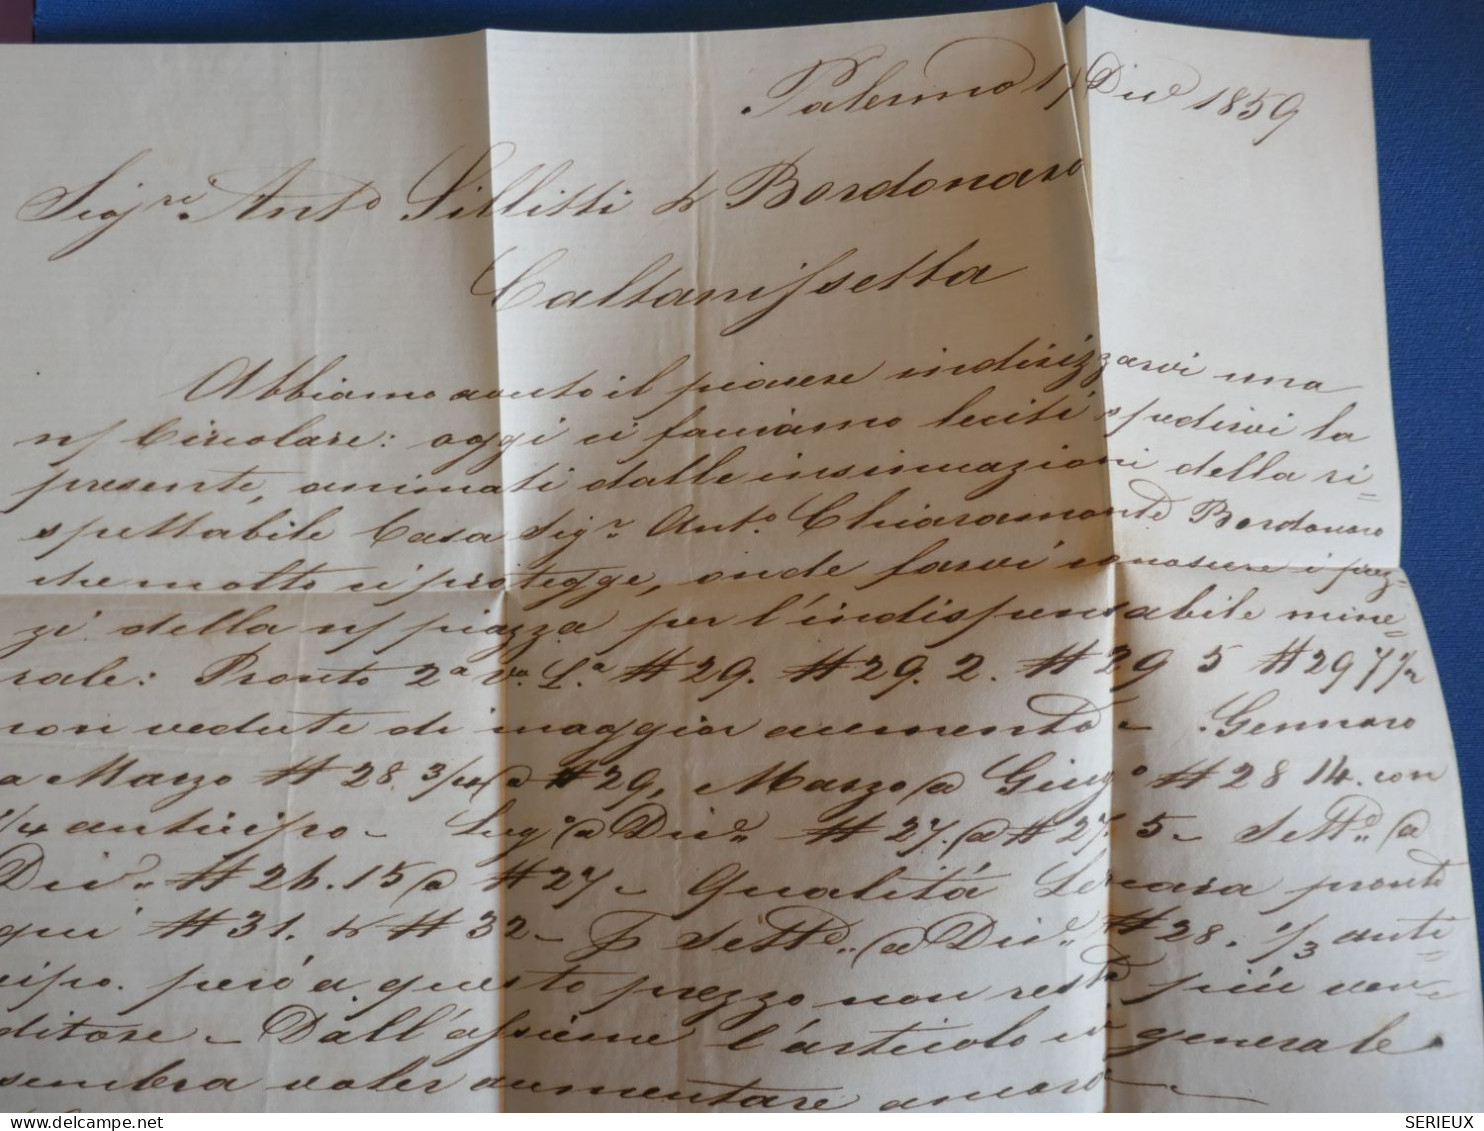 Palermo 17 Dicᵉ 1859
Sigʳⁱ Antº Sillitti & Bordonaro
Caltanissetta
Abbiamo avuto il piacere indirizzarvi una
n/ Circolare: oggi ci facciamo leciti spedirvi la
presente, animati dalle insinuazioni della ri=
spettabile Casa Sigʳ Antº Chiaramonte Bordonaro
che molto ci protegge, onde farvi conoscere i prez=
zi della n/ piazza per l'indispensabile mine=
rale: Pronto 2ª Vª Lª # 29. # 29. 2. # 29 5 # 29 7½
non vedute di maggior aumento – Gennaro
a Marzo # 28. 3/4 @ # 29, Marzo @ Giugº # 28 14. con
1/4 anticipo – Lugº @ Dicᵉ # 27. @ # 27. 5 – Settᵉ @
Dicᵉ # 26. 15 @ # 27 – Qualità Lercara pronto
qui # 31. & # 32 – Settᵉ @ Dicᵉ # 28. 1/3 anti=
cipo. però a questo prezzo non restò più ven=
ditore – Dall'assieme l'articolo in generale
sembra voler aumentare ancora –
SERIEUX